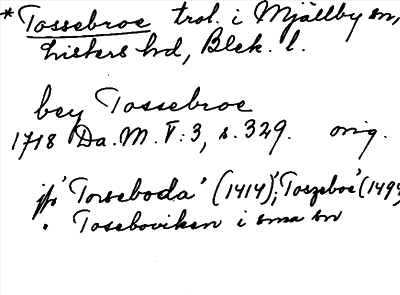 *Tossebroe trol. i Mjällby sn,
Listers hd, Blek. l.
bey Tossebroe
1718 Da. M. V:3, s. 329. orig.
jfr 'Torseboda' (1414); 'Toszeboe' (149
. Toseboviken i sma sn